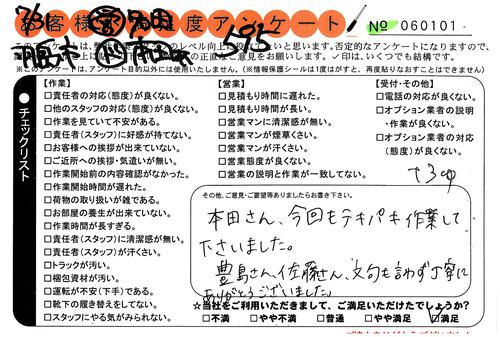 お客様満足度アンケート
№ 060101
※このアンケートは、アンケート目的以外には使用いたしません。(※情報保護シールは1度はがすと、再度貼りなおすことはできません)
●チェックリスト
【作業】
□責任者の対応(態度)が良くない。
□他のスタッフの対応(態度)が良くない。
□作業を見ていて不安がある。
□責任者(スタッフ)に好感が持てない。
□お客様への挨拶が出来ていない。
□ご近所への挨拶・気遣いが無い。
□作業開始前の内容確認がなかった。
□作業開始時間が遅れた。
□荷物の取り扱いが雑である。
□お部屋の養生が出来ていない。
□作業時間が長すぎる。
□責任者(スタッフ)に清潔感が無い。
□責任者(スタッフ)が汗くさい。
□トラックが汚い。
□梱包資材が汚い。
□運転が不安(下手)である。
□靴下の履き替えをしてない。
□スタッフにやる気がみられない。
【営業】
□見積もり時間に遅れた。
□見積もり時間が長い。
□営業マンに清潔感が無い。
□営業マンが煙草くさい。
□営業マンが汗くさい。
□営業態度が良くない。
□営業の説明と作業が一致してない。
【受付・その他】
□電話の対応が良くない。
□オプション業者の説明
・作業が良くない。
□オプション業者の対応
(態度)が良くない。
その他、ご意見・ご要望等ありましたらお書き下さい。
本田さん、今回もテキパキ作業して
下さいました。
豊島さん、佐藤さん、文句も言わず丁寧に
ありがとうございました。
☆当社をご利用いただきまして、ご満足いただけたでしょうか?
□不満 □やや不満 □普通 □やや満足 ☑満足